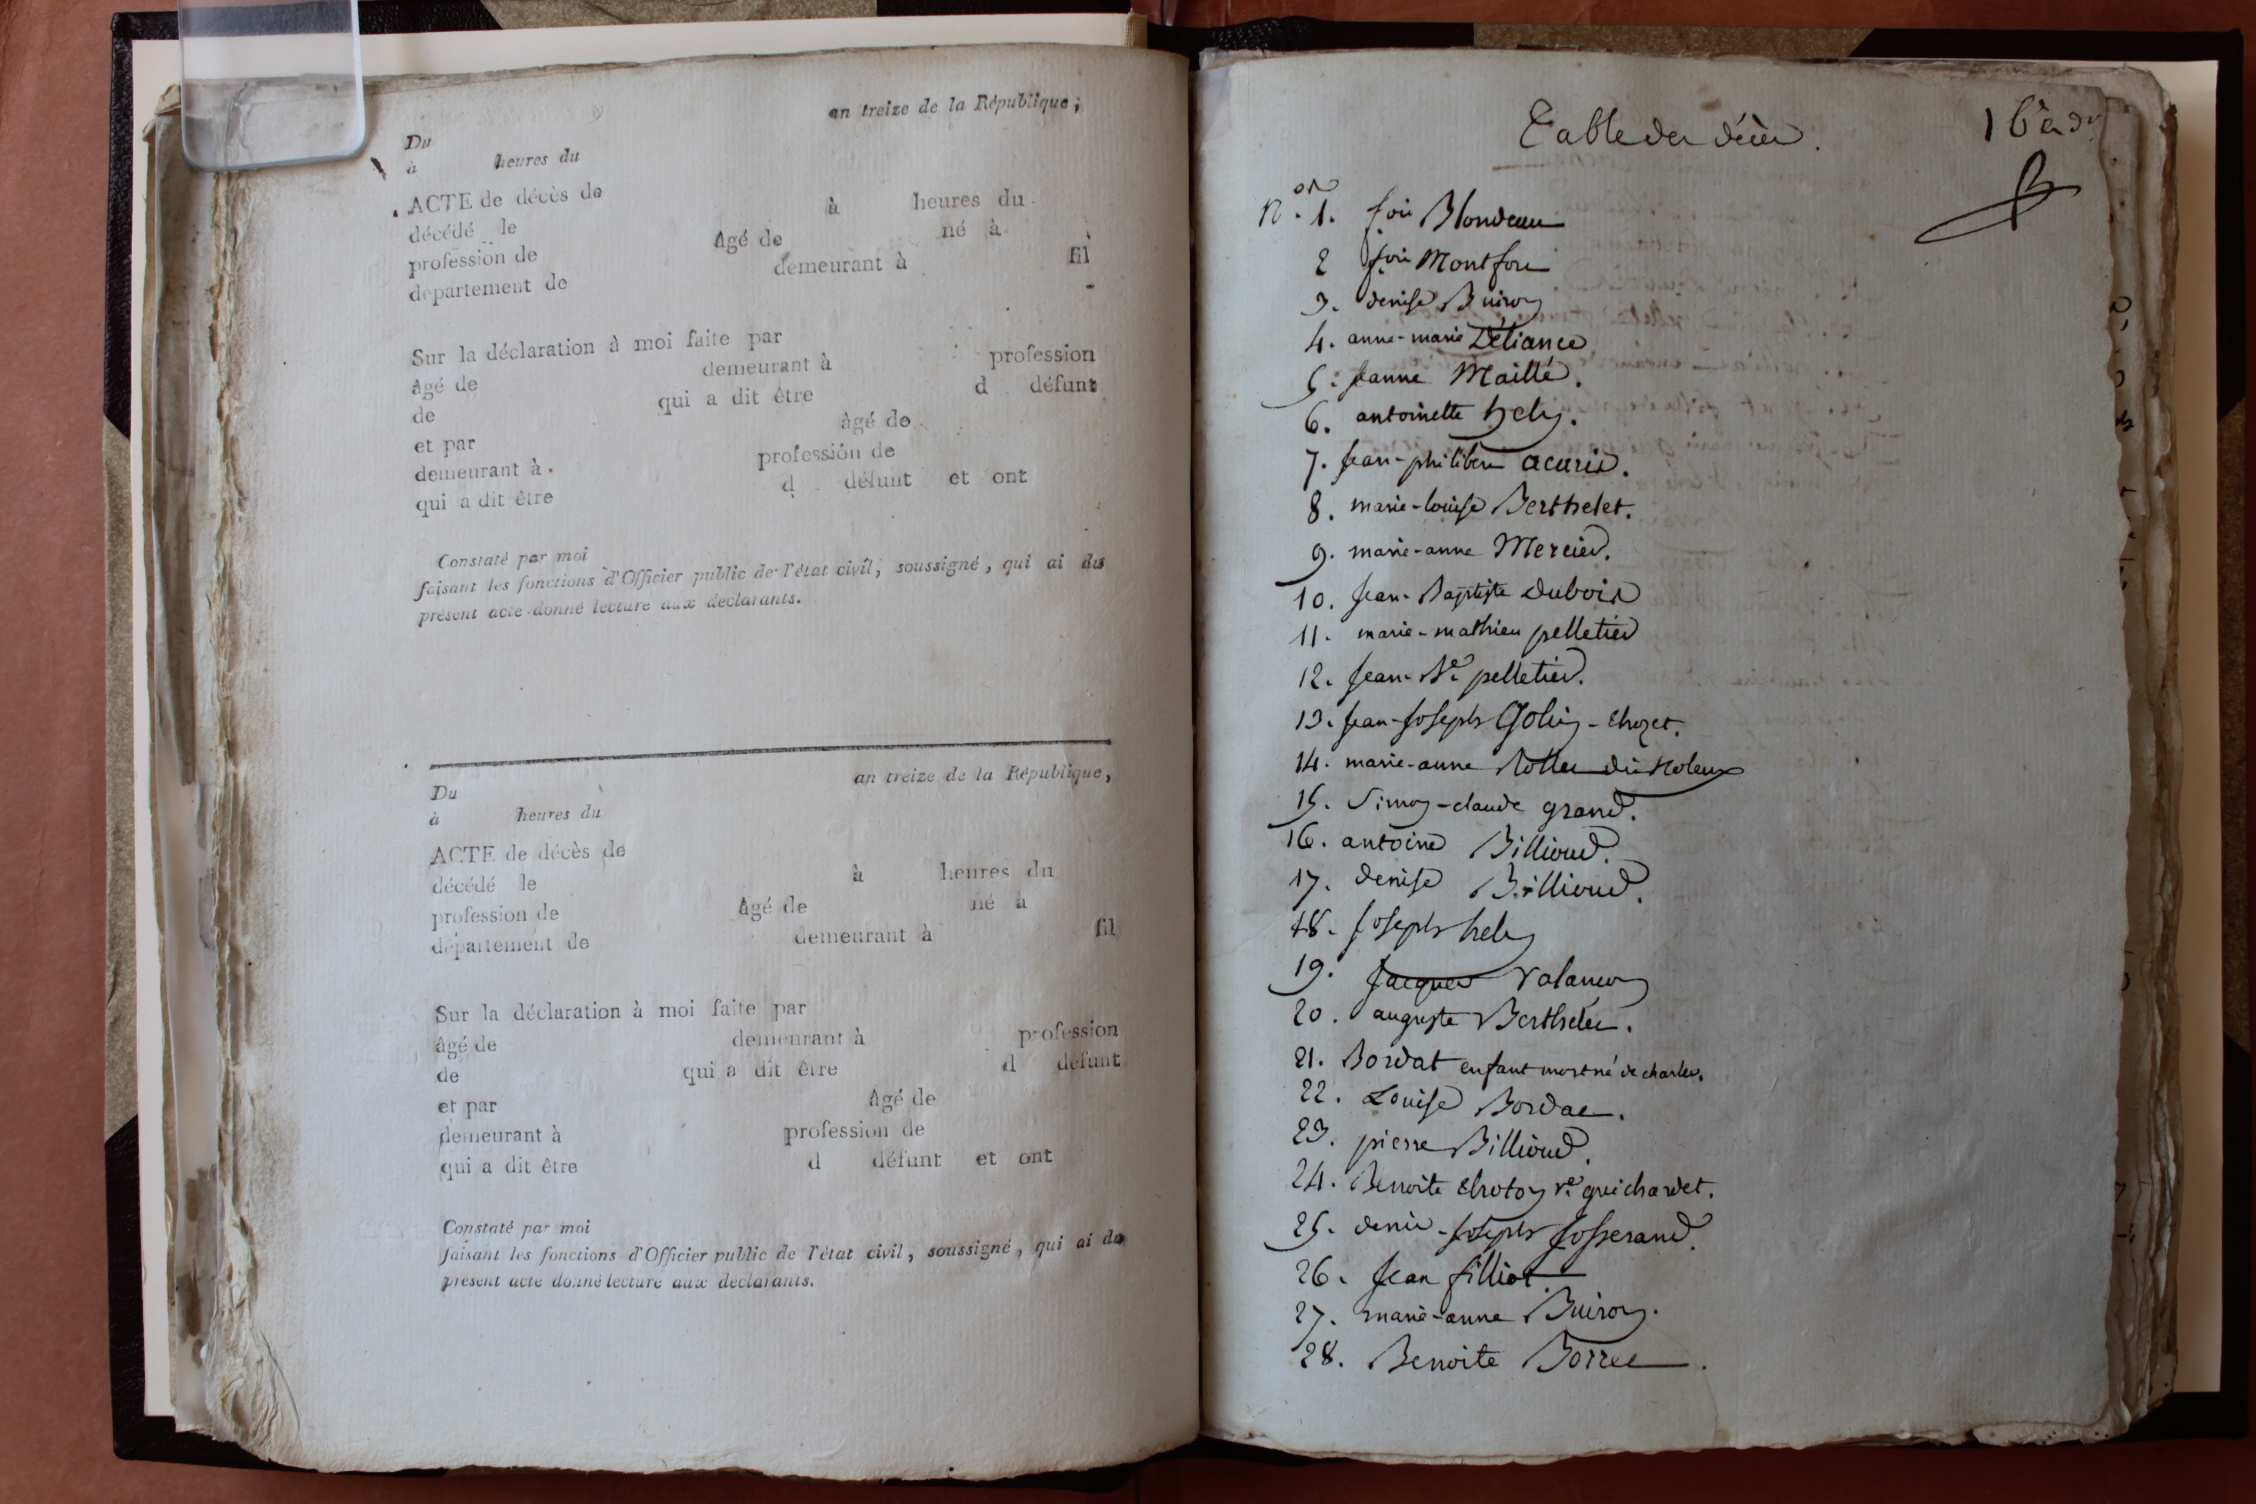 an treize de la République;
Du
à heures du
ACTE de décès de
décédé le à heures du
profession de âgé de né à
département de demeurant à fil
Sur la déclaration à moi faite par
âgé de demeurant à profession
de qui a dit être d défunt
et par âgé de
demeurant à profession de
qui a dit être d défunt et ont
Constaté par moi
faisant les fonctions d'Officier public de l'état civil, soussigné, qui ai du
présent acte donné lecture aux déclarants.
an treize de la République,
Du
à heures du
ACTE de décès de
décédé le à heures du
profession de âgé de né à
département de demeurant à fil
Sur la déclaration à moi faite par
âgé de demeurant à profession
de qui a dit être d défunt
et par âgé de
demeurant à profession de
qui a dit être d défunt et ont
Constaté par moi
faisant les fonctions d'Officier public de l'état civil, soussigné, qui ai du
présent acte donné lecture aux déclarants.
Table des décès.
N.os 1. fois Blondeau
2 fois Montfort
3. denise Buiron
4. anne-marie Déliance
5. Jeanne Maillé.
6. antoinette hely.
7. Jean-philibert acarie.
8. marie-louise Berthelet.
9. marie-anne Mercier.
10. Jean-Baptiste Dubois
11. marie-mathieu pelletier
12. Jean-Bte pelletier.
13. Jean-Joseph Golin-Chozet.
14. marie-anne
15. Simon-claude grand.
16. antoine Billioud.
17. denise Billioud.
18. Joseph hely
19. Jacques Valancon
20. auguste Berthelet.
21. Bordat enfant mort né de charles.
22. Louise Bordat.
23. pierre Billioud.
24. Benoite Choton ve guichardet.
25. denis-Joseph Josserand.
26. Jean filliot.
27. marie-anne Buiron.
28. Benoite Borret.